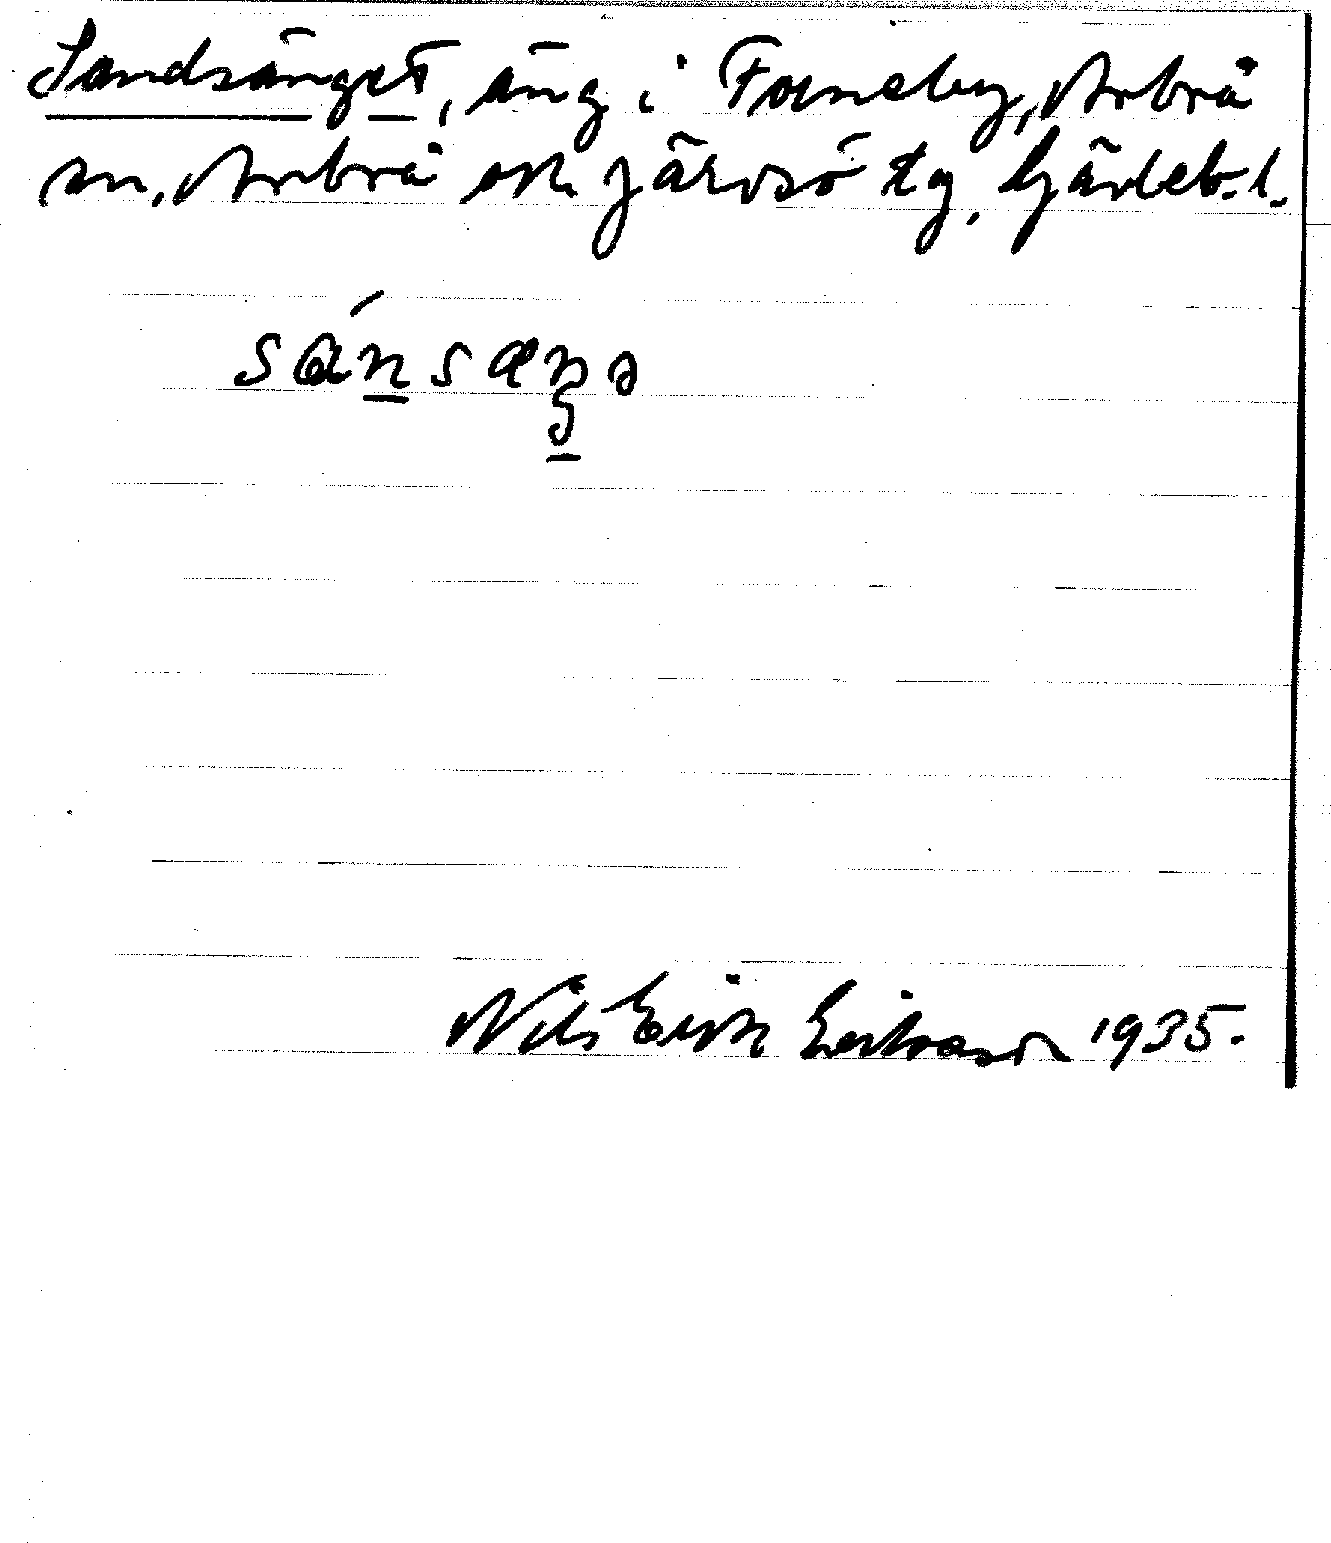 Sandsänget, äng i Forneby, Arbrå
sn, Arbrå och Järvsö tg, Gävleb. l.
sánsæŋə
Nils Erik Eriksson 1935.